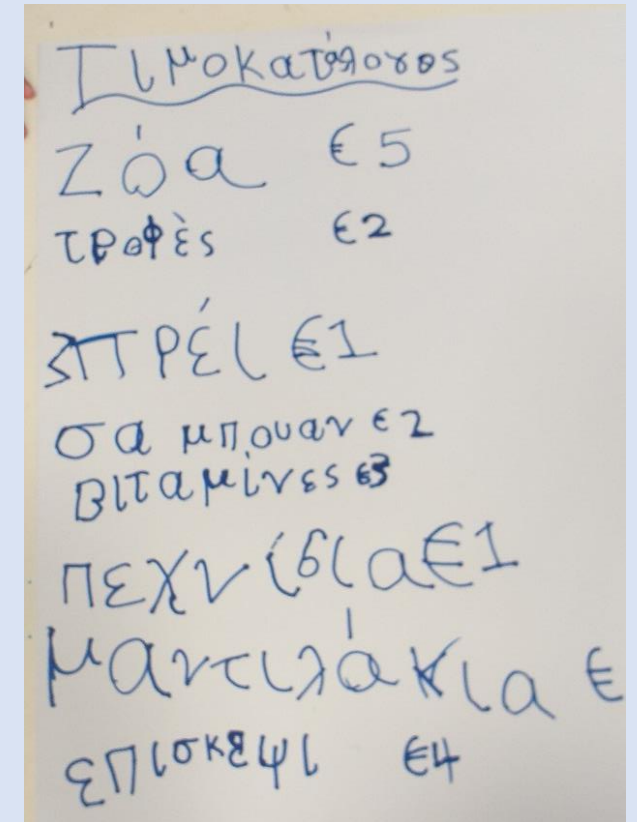 Τιμοκατάλογος
Ζόα €5
τροφὲς €2
ΣΠΡέι €1
σα μπουαν €2
Βιταμίνες €3
πεχνίδια €1
μαντιλάκια €
επισκεψι €4